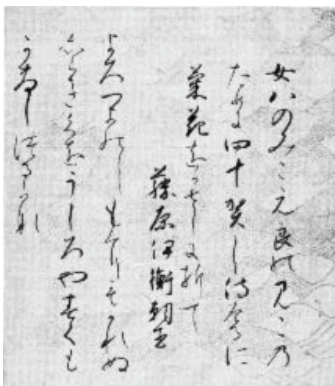 女八のみこ元良のみこの
ために四十賀し侍けるに
菊花をかさしに折て
藤原伊衡朝臣
よろつよのしもにもかれぬ
しらきくをうしろやすくも
かさしつるかな